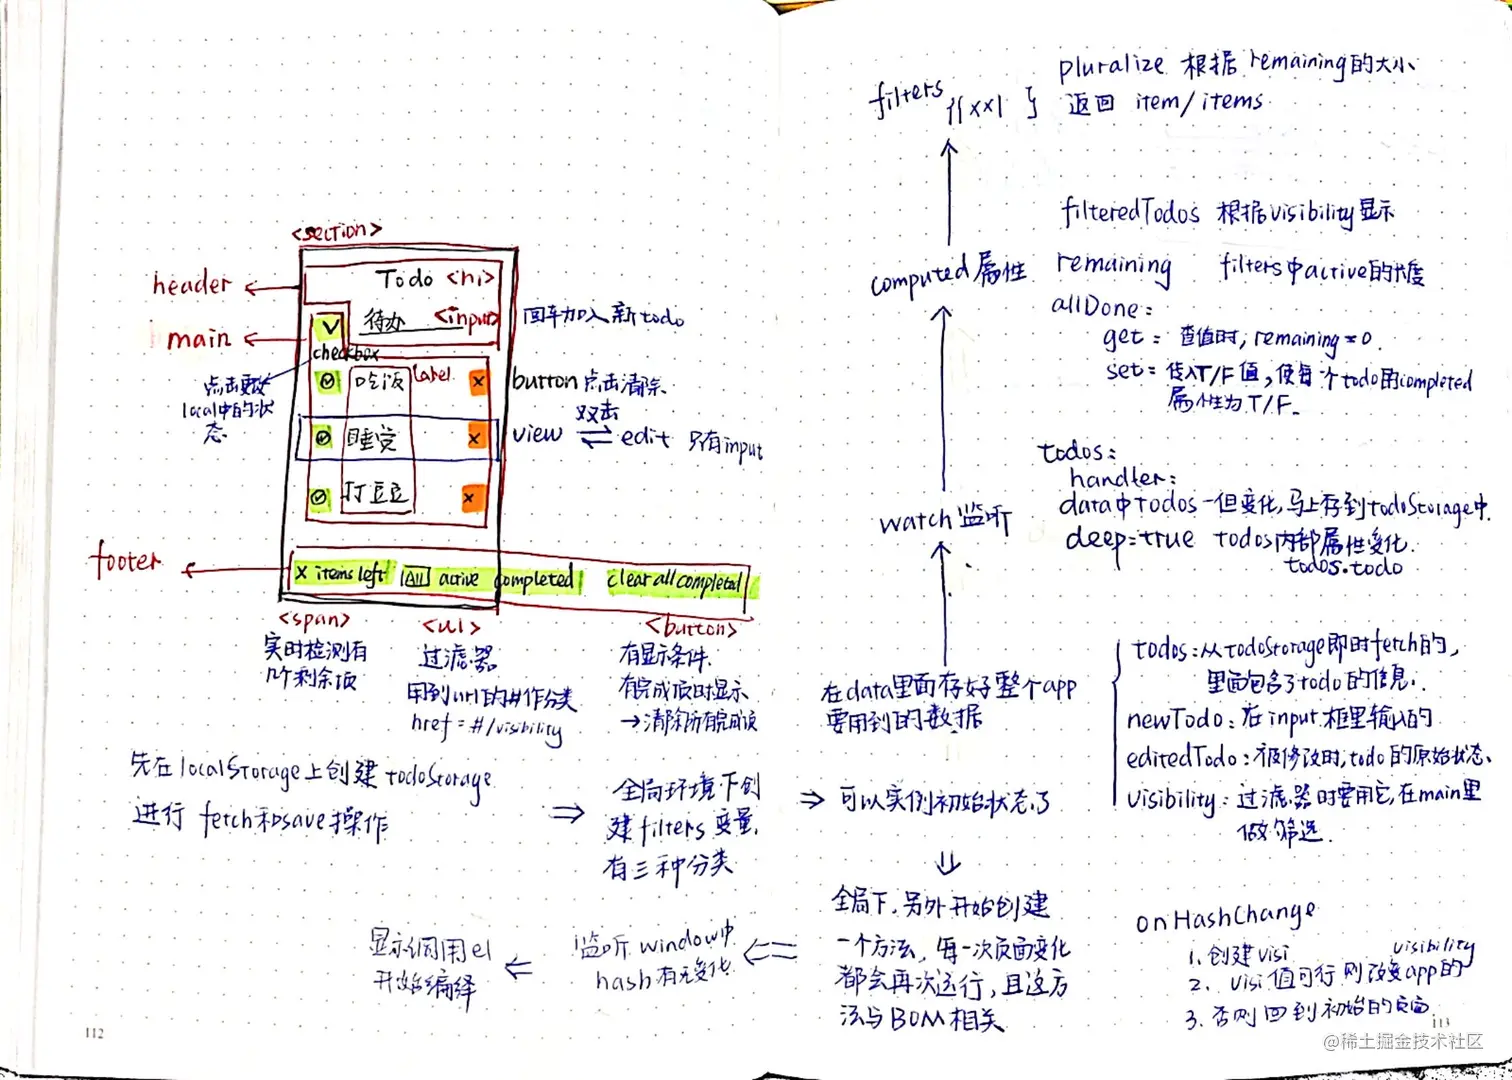 <section>
header
Todo <h1>
main
待办 <input> 回车加入新todo
checkbox
点击更改
local中的状
态
吃饭 label × button点击清除
双击
睡觉 × view ⇌ edit 只有input
打豆豆 ×
footer
x items left All active completed clear all completed
<span> <ul> <button>
实时检测有
几个剩余项
过滤器
用到url的#作分类
href = #/visibility
有显示条件.
有完成项时显示
→清除所有完成项
先在localStorage上创建todoStorage
进行 fetch和save操作
⇒
全局环境下创
建filters变量,
有三种分类
⇒ 可以实例初始状态了
全局下,另外开始创建
一个方法,每一次页面变化
都会再次运行,且这方
法与BOM相关
监听window中
hash有无变化.
显示调用el
开始编绎
112
filters {{xx| }
pluralize 根据remaining的大小
返回 item/items
computed属性
filteredTodos 根据visibility显示
remaining filters中active的长度
allDone:
get: 查值时, remaining=0.
set: 传入T/F值,使每个todo的completed
属性为T/F.
watch监听
todos:
handler:
data中todos一但变化,马上存到todoStorage中.
deep:true todos内部属性变化.
todos.todo
在data里面存好整个app
要用到的数据
todos:从todoStorage即时fetch的,
里面包含了todo的信息.
newTodo:在input框里输入的
editedTodo:被修改时,todo的原始状态.
visibility:过滤器时要用它,在main里
做筛选.
onHashChange
1. 创建visi
visibility
2. visi值可行则改变app的
3. 否则回到初始的页面.
113
@稀土掘金技术社区